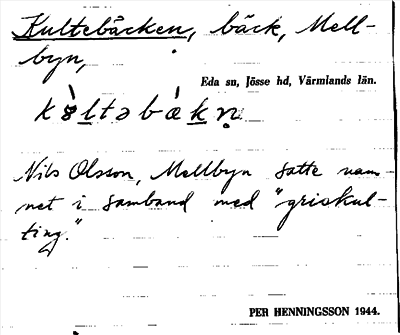 Kultebäcken, bäck, Mell-
byn,
Eda sn, Jösse hd, Värmlands län.
Nils Olsson, Mellbyn satte nam-
net i samband med "griskul-
ting."
PER HENNINGSSON 1944.